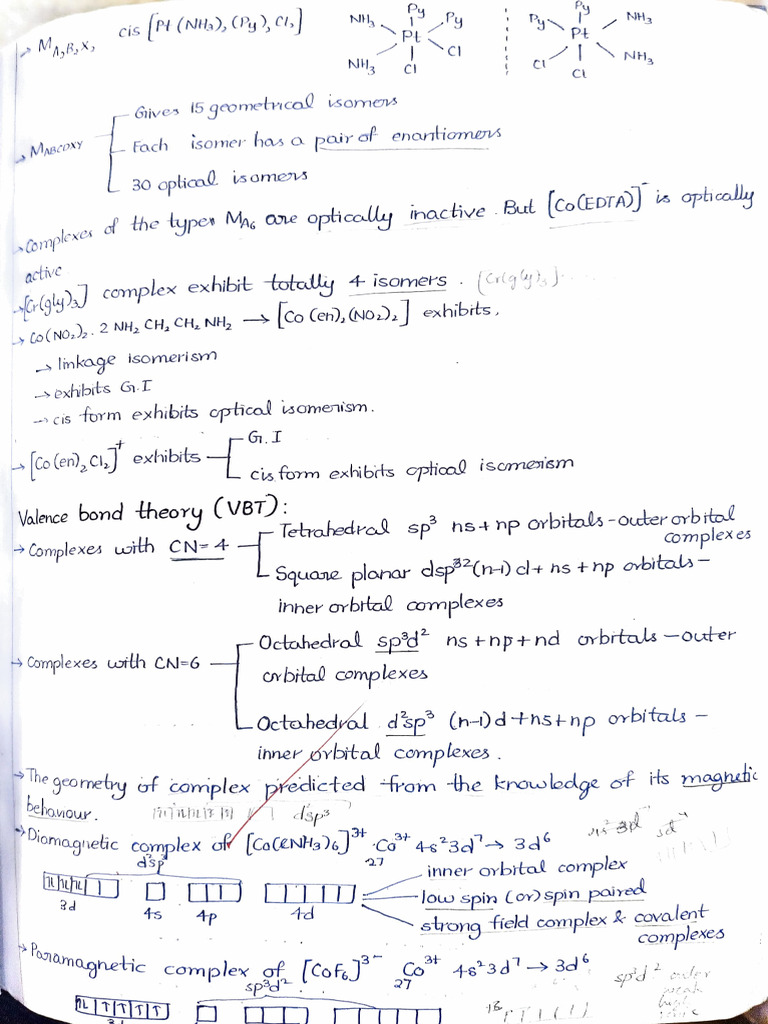 → MA₂B₂X₂ cis [Pt (NH₃)₂(Py)₂Cl₂]
Py
NH₃ Py
Pt
NH₃ Cl
Cl
Py
Py NH₃
Pt
Cl NH₃
Cl
→ MABCDXY
Gives 15 geometrical isomers
Each isomer has a pair of enantiomers
30 optical isomers
→ Complexes of the types MA₆ are optically inactive. But [Co(EDTA)]⁻ is optically
active
→ [Cr(gly)₃] complex exhibit totally 4 isomers. [Cr(gly)₃]
→ Co(NO₂)₂ . 2 NH₂ CH₂ CH₂ NH₂ → [Co (en)₂(NO₂)₂] exhibits,
→ linkage isomerism
→ exhibits G.I
→ cis form exhibits optical isomerism.
→ [Co(en)₂Cl₂]⁺ exhibits
G.I
cis form exhibits optical isomerism
Valence bond theory (VBT):
→ Complexes with CN=4
Tetrahedral sp³ ns+np orbitals-outer orbital
complexes
Square planar dsp² (n-1) d+ ns+np orbitals-
inner orbital complexes
→ Complexes with CN=6
Octahedral sp³d² ns+np+nd orbitals-outer
orbital complexes
Octahedral d²sp³ (n-1)d+ns+np orbitals-
inner orbital complexes.
→ The geometry of complex predicted from the knowledge of its magnetic
behaviour.
d²sp³
→ Diamagnetic complex of [Co(NH₃)₆]³⁺ Co³⁺ 4s²3d⁷ → 3d⁶
27
d²sp³
3d 4s 4p 4d
inner orbital complex
low spin (or) spin paired
strong field complex & covalent
complexes
→ Paramagnetic complex of [CoF₆]³⁻ Co³⁺ 4s²3d⁷ → 3d⁶
27
sp³d²
sp³d² outer
weak